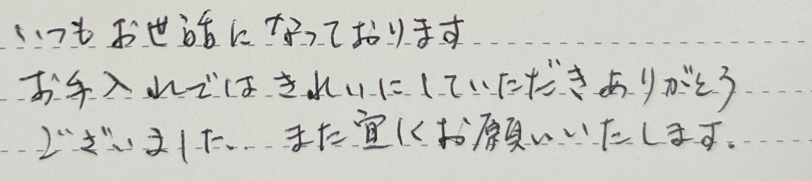 いつもお世話になっております
お手入れではきれいにしていただきありがとう
ございました。また宜しくお願いいたします。